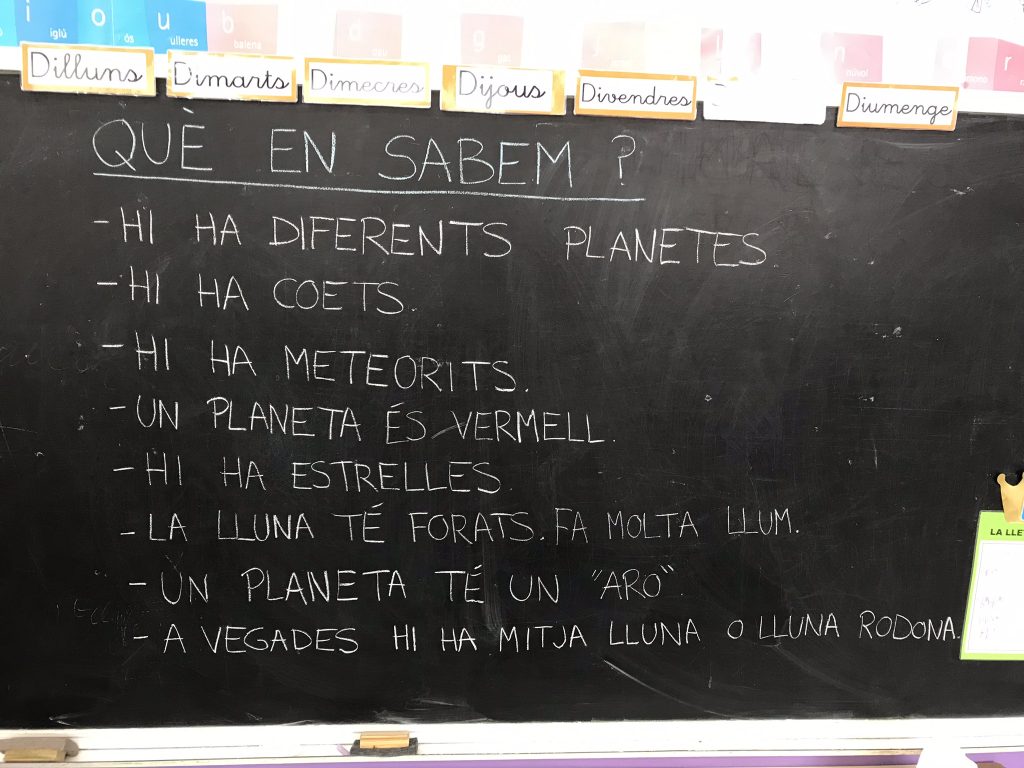 i o u b d g n r
iglú ós ulleres balena núvol
Dilluns Dimarts Dimecres Dijous Divendres Diumenge
QUÈ EN SABEM ?
- HI HA DIFERENTS PLANETES
- HI HA COETS.
- HI HA METEORITS.
- UN PLANETA ÉS VERMELL.
- HI HA ESTRELLES.
- LA LLUNA TÉ FORATS. FA MOLTA LLUM.
- UN PLANETA TÉ UN "ARO".
- A VEGADES HI HA MITJA LLUNA O LLUNA RODONA.
LA LLE